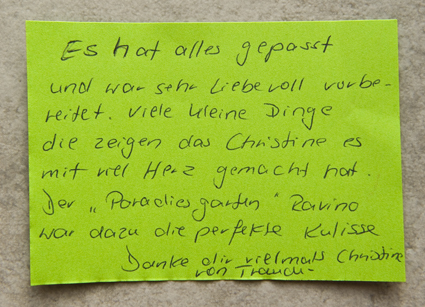 Es hat alles gepasst
und war sehr liebevoll vorbe-
reitet. Viele kleine Dinge
die zeigen das Christine es
mit viel Herz gemacht hat.
Der „Paradiesgarten" Zavino
war dazu die perfekte Kulisse
Danke dir vielmals Christine
von